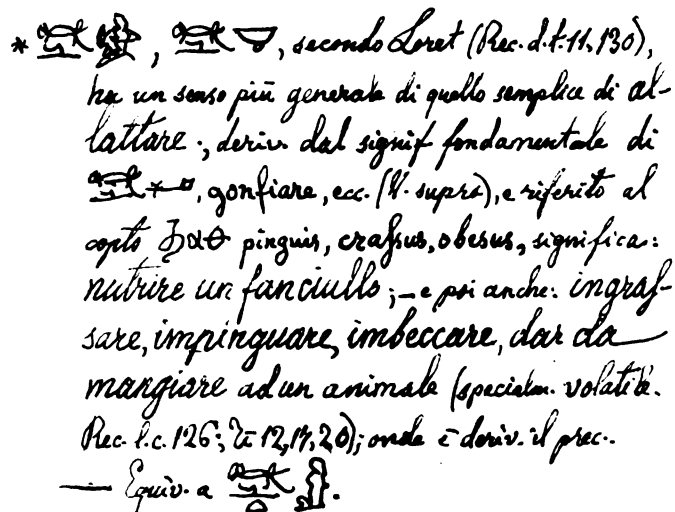 * , , secondo Loret (Rec. d. t. 11, 130),
ha un senso più generale di quello semplice di al-
lattare ; deriv. dal signif fondamentale di
, gonfiare, ecc. (V. supra), e riferito al
copto pinguis, crassus, obesus, significa:
nutrire un fanciullo; — e poi anche: ingras-
sare, impinguare, imbeccare, dar da
mangiare ad un animale (specialm. volatili.
Rec. l. c. 126; 12, 17, 20); onde è deriv. il prec.
— Equiv. a .